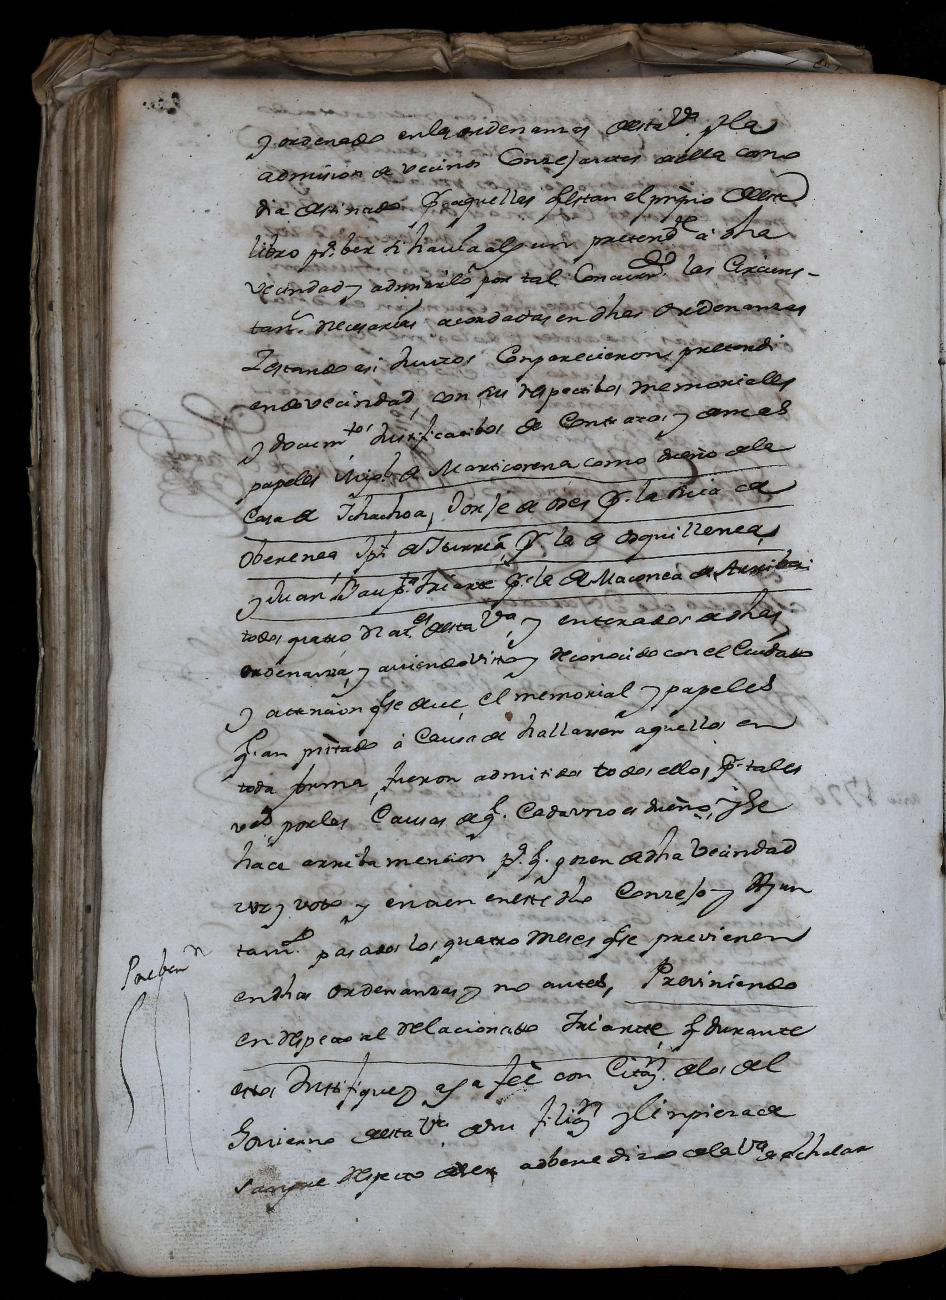 y ordenado en las ordenanzas desta Va. y la
admision de vecinos Conzejantes de ella como
dia destinado pa. aquellos q. estan el prinpio deeste
libro pa. ber si havia algun pretende. a dha
vecindad y admitirlo por tal Concurrdo. las Circuns-
tans. necesarias acordadas en dhas Ordenanzas
Y estando asi Juntos Conparecieron pretendi
endo vecindad, con sus respectibos memoriales
y docum.tos Justificatibos de Contratos y demas
papeles Migl. de Marticorena como dueño de la
Casa de Ychachoa, Jorje de Odes pr. la suia de
Oberenea Jph. de Yturria pr. la de Osquillenea,
y Juan Baupta. Yriarte pr. la de Maionea de Arribari
todos quatro nat.es desta Va. y enterados de dhas
ordenanzas y aviendo visto y reconocido con el Cuidado
y atencion q. se deve, el memorial y papeles
q. an prstado a Causa de hallarsen aquellos en
toda forma, fueron admitidos todos ellos, pr. tales
vos. por las Causas de q. Cada uno es dueño, y se
hace arriba mencion pa. q. gozen de dha vecindad
voz y voto y entren en este dho Conzejo y Ayun
tamto. pasados los quatro meses q. se previenen
en dhas Ordenanzas y no antes, Previniendo
Preben.n
en respecto al relacionado Yriarte q. durante
ellos Justifique y aga feê con Citn. de los del
Govierno desta Va. de su filian. y limpieza de
sangre respecto de ser adbenedizo de la Va. de echalar